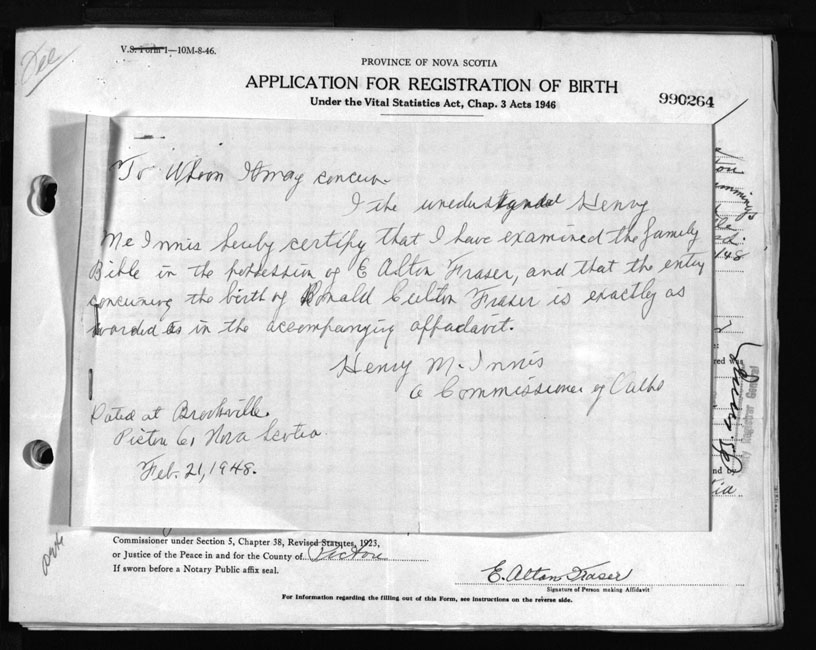 V.S. Form 1—10M-8-46.
PROVINCE OF NOVA SCOTIA
APPLICATION FOR REGISTRATION OF BIRTH
Under the Vital Statistics Act, Chap. 3 Acts 1946
990264
To Whom It may concern
I the Henry
Mc Innis hereby certify that I have examined the family
Bible in the possession of E Alton Fraser, and that the entry
concerning the birth of Ronald Fraser is exactly as
worded in the accompanying affadavit.
Henry Mc Innis
a Commissioner of Oaths
Dated at Brookville
Pictou Co, Nova Scotia
Feb. 21, 1948.
Commissioner under Section 5, Chapter 38, Revised Statutes, 1923,
or Justice of the Peace in and for the County of Pictou
If sworn before a Notary Public affix seal.
E. Alton Fraser
Signature of Person making Affidavit
For Information regarding the filling out of this Form, see instructions on the reverse side.